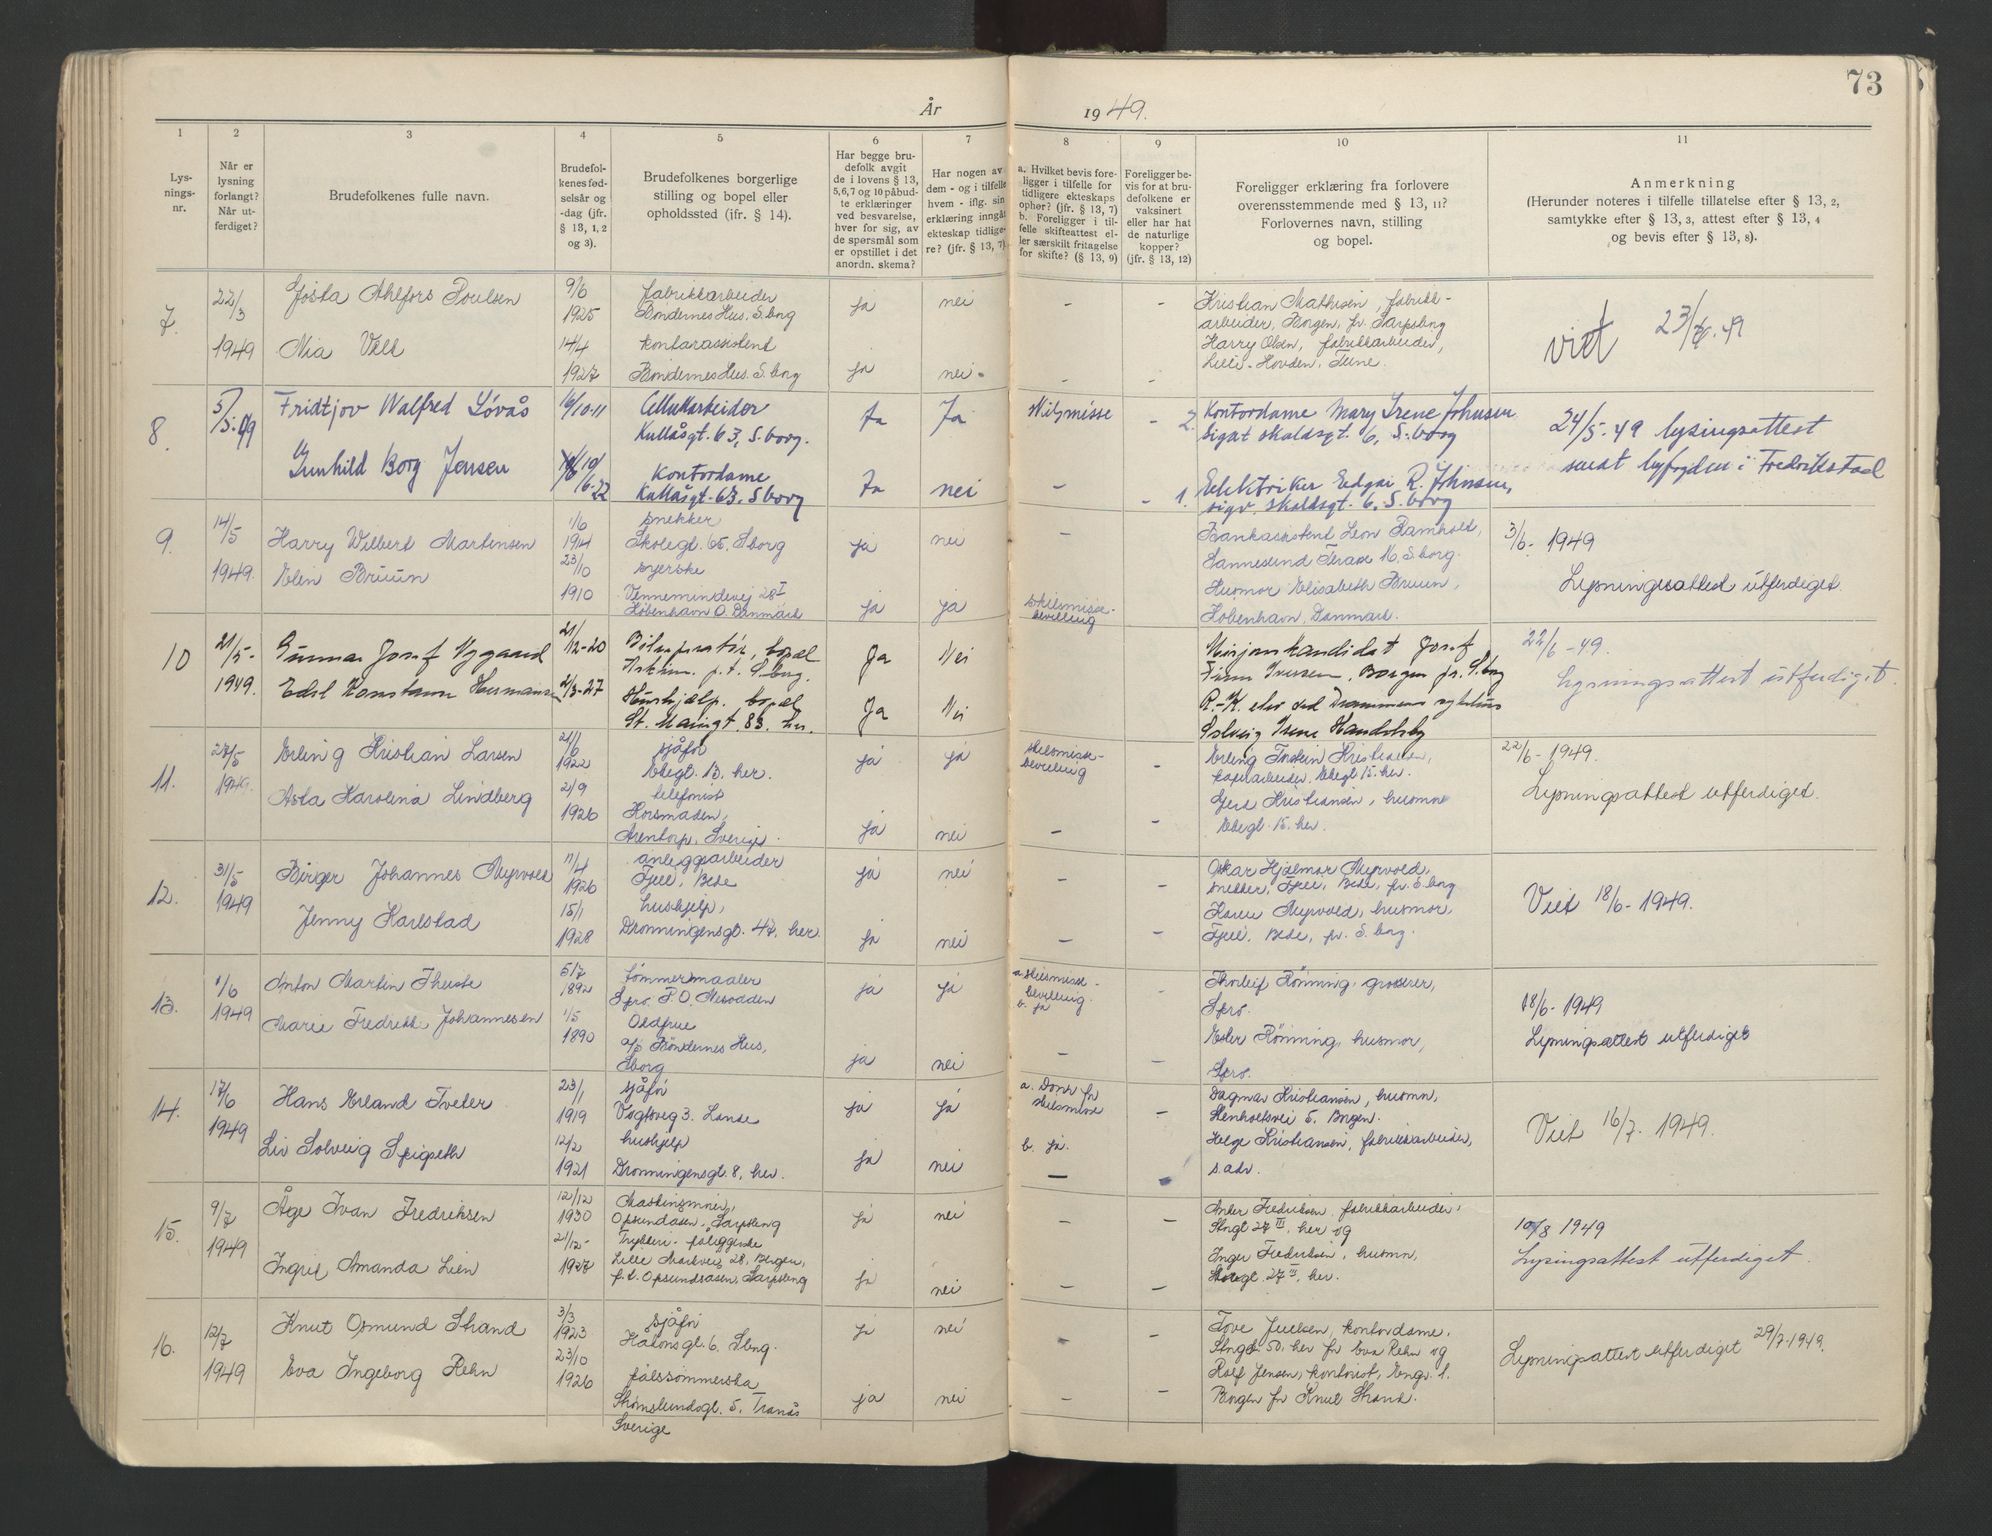 73
År 1949.
1 2 3 4 5 6 7 8 9 10 11
Lys-
nings-
nr.
Når er
lysning
forlangt?
Når ut-
ferdiget?
Brudefolkenes fulle navn.
Brudefol-
kenes fød-
selsår og
-dag (jfr.
§ 13, 1, 2
og 3).
Brudefolkenes borgerlige
stilling og bopel eller
opholdssted (jfr. § 14).
Har begge bru-
defolk avgit
de i lovens § 13,
5, 6, 7 og 10 påbud-
te erklæringer
ved besvarelse,
hver for sig, av
de spørsmål som
er opstillet i det
anordn. skema?
Har nogen av
dem - og i tilfelle
hvem - iflg. sin
erklæring inngått
ekteskap tidlige-
re? (jfr. § 13, 7).
a. Hvilket bevis fore-
ligger i tilfelle for
tidligere ekteskaps
ophør? (jfr. § 13, 7)
b. Foreligger i til-
felle skifteattest el-
ler særskilt fritagelse
for skifte? (§ 13, 9)
Foreligger be-
vis for at bru-
defolkene er
vaksinert
eller har hat
de naturlige
kopper?
(jfr. § 13, 12)
Foreligger erklæring fra forlovere
overensstemmende med § 13, 11?
Forlovernes navn, stilling
og bopel.
Anmerkning
(Herunder noteres i tilfelle tillatelse efter § 13, 2,
samtykke efter § 13, 3, attest efter § 13, 4
og bevis efter § 13, 8).
7.
22/3
1949
Gösta Ahlfors Poulsen
9/6
1925
fabrikkarbeider
Bøndernes Hus, S.borg
ja
nei
-
-
Kristian Mathisen, fabrikk-
arbeider, Borgen, pr. Sarpsborg
Nia
14/4
1927
kontorassistent
Bøndernes Hus. S.borg
ja
nei.
-
-
Harry Olsen, fabrikkarbeider,
Lille-Hovden, Tune.
viet 23/6.49
8.
5/5.49
Fridtjov Walfred Løvås
16/10-11
Cellul.arbeider
Kullåsgt. 63, S.borg.
Ja
Ja
Skilsmisse
-
2. Kontordame Mary Irene Johnsen
Sigvat skaldsgt. 6, S.borg
Gunhild Borg Jensen
Kontordame
Kullåsgt. 63. S.borg
Ja
nei
-
-
1. Elektriker Edgar R. Johnsen,
sigv. skaldsgt. 6, S.borg
24/5-49 lysingsattest
sendt byfogden i Fredrikstad
9.
14/5
1949.
Harry Wilbert Martensen
1/6
1914
snekker
Skolegt. 65, S.borg
ja
nei
-
Bankassistent Leon Ramholt,
Sannesund Terasse 16, S.borg.
Elin Bruun
23/10
1910
syerske
Vennemindevej 28 I
København O. Danmark
ja
ja
skilsmisse-
bevilling
Husmor Elisabeth Bruun,
København, Danmark.
3/6. 1949
Lysningsattest utferdiget.
10
21/5-
1949.
Gunnar Josef Nygaard
21/12-20
Biloperatør, bopæl
Askim. p.t. S.borg.
Ja
Nei
Misjonskandidat Josef
Finn Iversen, Borgen pr. S.borg
Edel Konstanse Hermansen
2/3-27
Hushjelp. bopæl
St. Mariegt. 83. her.
Ja
Nei
R.-K. elev ved Drammens sykehus
Solveig Irene Handelsby
22/6-49.
Lysningsattest utferdiget.
11.
27/5
1949.
Erling Kristian Larsen
21/6
1922
sjåfør
Ekegt. 13, her.
ja
ja
skilsmisse-
bevilling
-
Erling Torstein Kristiansen,
papirarbeider. Ekegt 15. her.
Asta Karolina Lindberg
21/9
1926
telefonist
Horsmaden,
Arentorp, Sverige.
ja
nei
-
Gerd Kristiansen, husmor
Ekegt. 15. her.
22/6-1949.
Lysningsattest utferdiget.
12.
31/5
1949
Birger Johannes Myrvold
11/4
1926
anleggsarbeider
Fjell, Bede
ja
nei
-
-
Oskar Hjalmar Myrvold,
snekker, Fjell, Bede, pr. S.borg
Jenny Karlstad
15/1
1928
hushjelp,
Dronningensgt. 47, her.
ja
nei
-
-
Karen Myrvold, husmor,
Fjell, Bede, pr. S.borg.
Viet 18/6-1949.
13.
1/6
1949
Anton Martin Thuste
5/7
1892
tømmermaaler
Spro. P.O. Nesodden
ja
ja
a. Skilsmisse-
bevilling.
b. ja
-
Thorleif Rönning, grosserer,
Spro.
Marie Fredrikke Johannesen
1/5
1890
Oldfrue
a/o Bøndernes Hus,
S.borg
ja
nei
-
-
Ester Rönning, husmor,
Spro.
18/6-1949
Lysningsattest utferdiget
14.
17/6
1949
Hans Erland Tveter
23/1
1919
sjåfør
Vogtsveg 3. Lande
ja
ja
a. Dom for
skilsmisse
b. ja.
-
Dagmar Kristiansen, husmor,
Stenhoftsvei 5. Borgen.
Liv Solveig Spigseth
12/2
1921
hushjelp
Dronningensgt. 8, her.
ja
nei
-
Helge Kristiansen, fabrikkarbeider,
s.adr.
Viet 16/7. 1949.
15.
9/7
1949
Åge Ivan Fredriksen
12/12
1930
Maskinsmøier,
Opsundåsen, Sarpsborg
ja
nei
-
-
Anker Fredriksen, fabrikkarbeider,
Storgt 27 III, her og
Ingrid Amanda Lien
21/12-
1927
Trykkeri-påleggerske
Lille Markvei 28, Bergen,
p.t. Opsundåsen, Sarpsborg
ja
nei
-
-
Inger Fredriksen, husmor,
Storgt. 27 III, her.
10/8 1949
Lysingsattest utferdiget.
16.
12/7
1949
Knut Osmund Strand
3/3
1923
sjåfør
Håkonsgt. 6. S.borg.
ja
nei
-
-
Tove Juelsen, kontordame.
Storgt 50. her for Eva Rehn og
Eva Ingeborg Rehn
23/10
1926
pälssömmerska
Strömslundsgt. 5, Tranås
Sverige
ja
nei
-
-
Rolf Jensen, kontorist, Engv. 1.
Borgen for Knut Strand.
Lysningsattest utferdiget 29/7.1949.